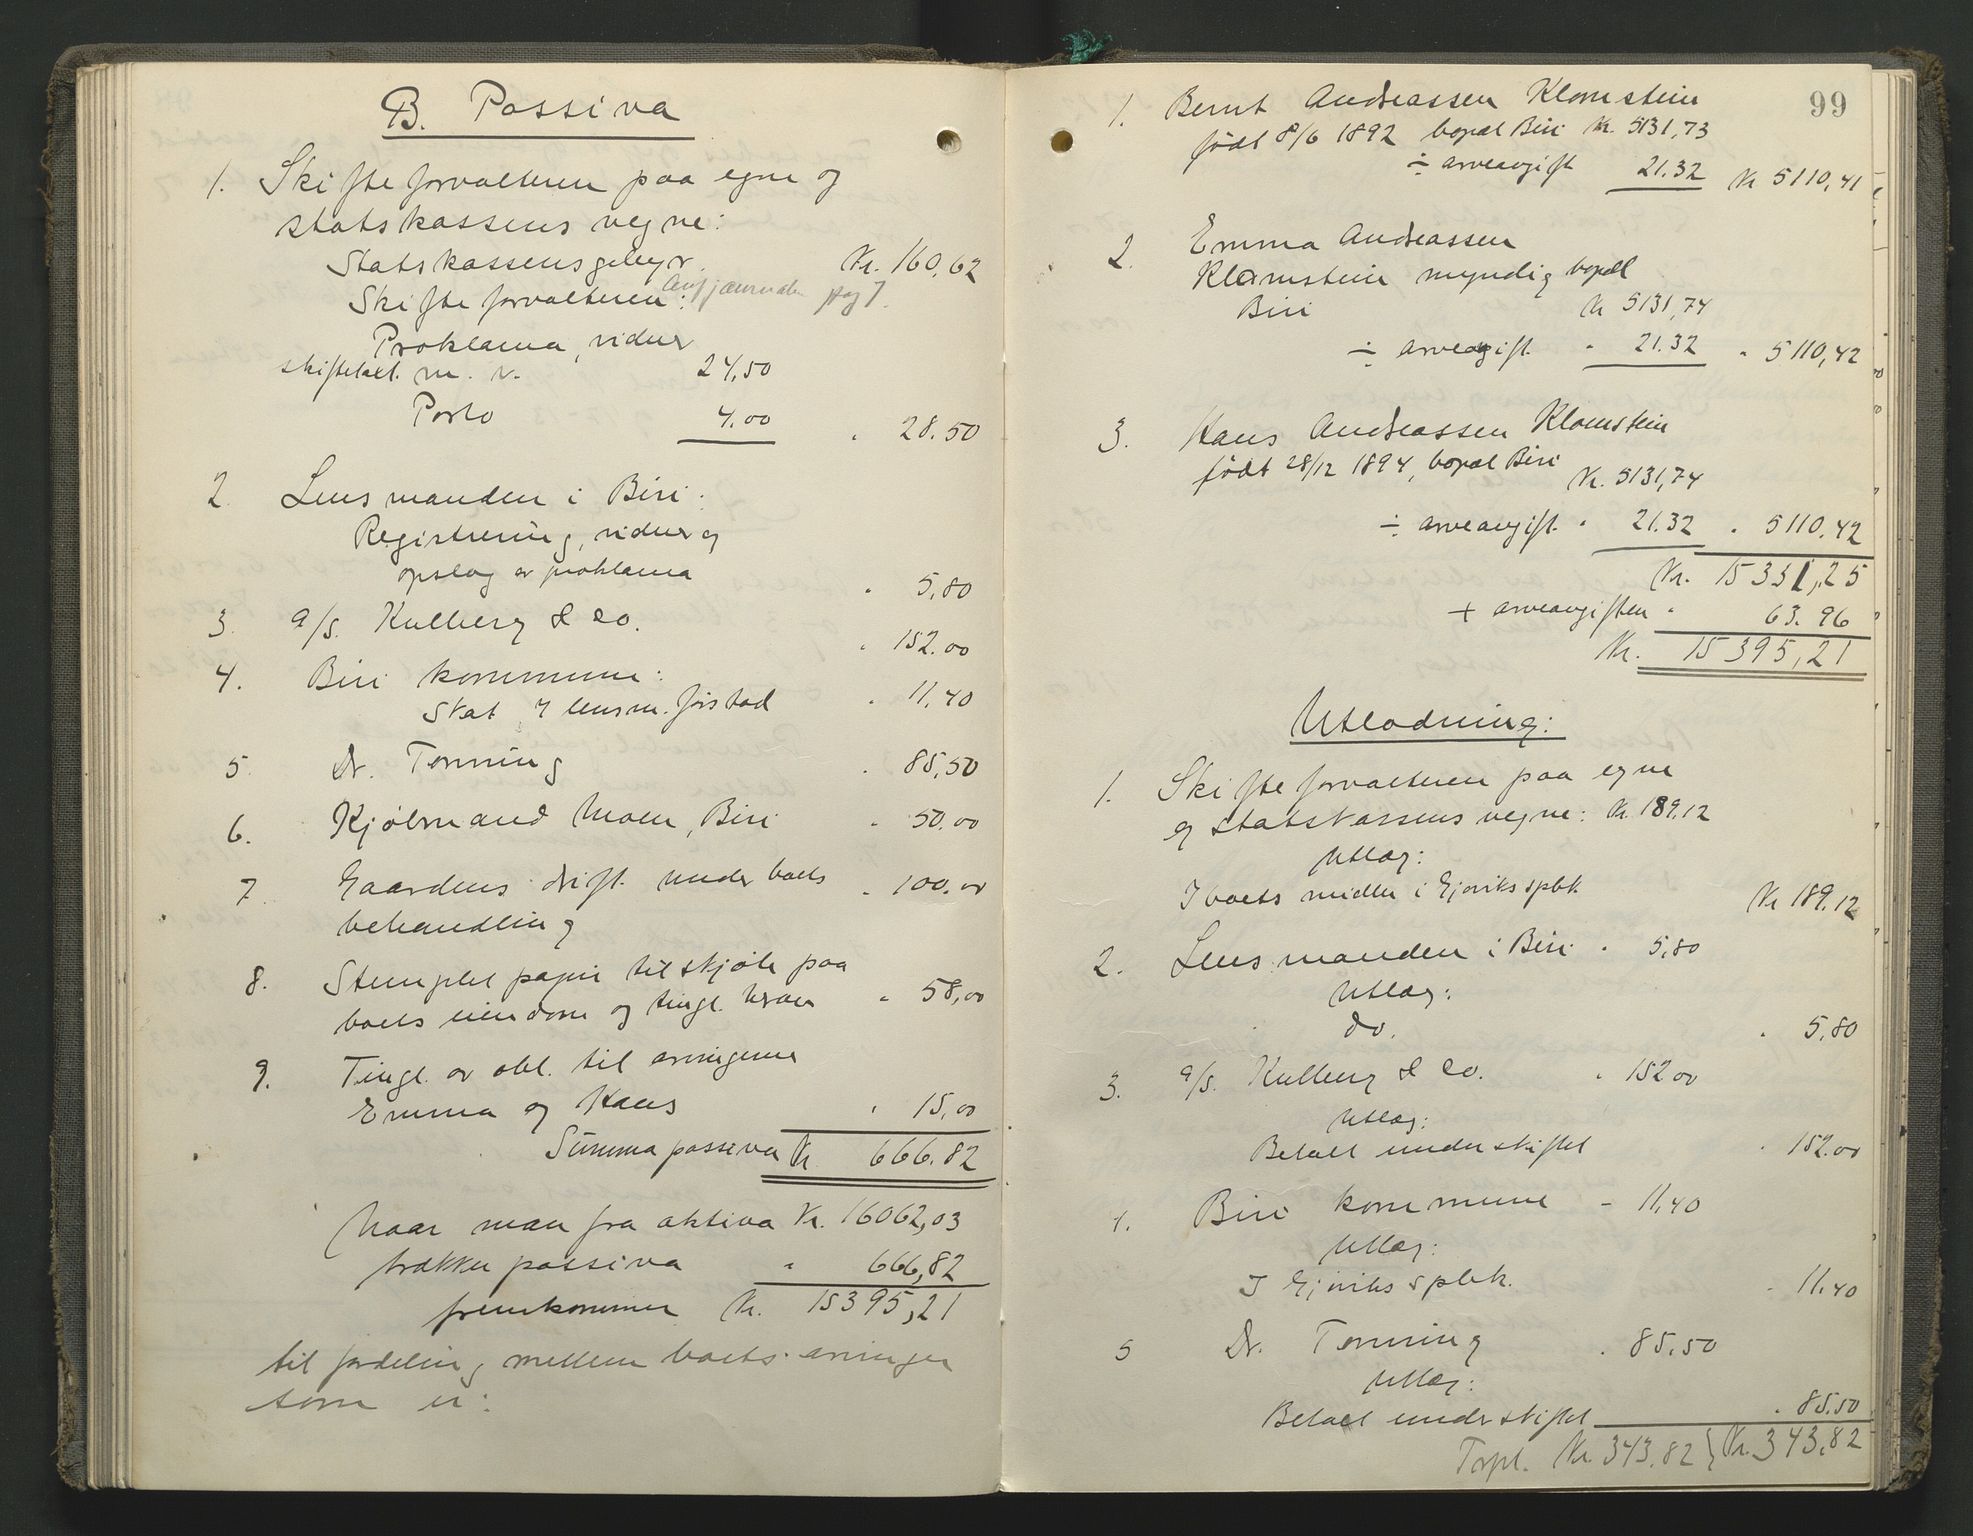 B. Passiva
1. Skifteforvalteren paa egne og
statskassens vegne:
Statskassens gebyr. Kr. 160,62
Skifteforvalteren: pag 7.
Proklama, vidner
skiftetakt. m. v. 24,50
Porto 4.00 " 28.50
2. Lensmanden i Biri:
Registrering, vidner og
opslag av proklama " 5,80
3. A/S. Kulberg & Co. " 152.00
4. Biri kommune:
Skat % lensm. Forstad " 11,40
5. Dr. Tonning " 85,50
6. Kjøbmand Moen, Biri " 50.00
7 Gaardens drift under boets " 100.00
behandling
8. Stemplet papir til skjøte paa
boets eiendom og tingl. herav " 58,00
9. Tingl. av obl. til arvingerne
Emma og Hans " 15,00
Summa passiva Kr 666.82
Naar man fra aktiva Kr. 16062,03
trækker passiva " 666,82
fremkommer Kr. 15395,21
til fordeling mellem boets arvinger
som er:
99
1. Bernt Andreassen Klomstein
født 8/6 1892 bopæl Biri Kr. 5131,73
÷ arveavgift 21.32 Kr 5110,41
2. Emma Andreassen
Klomstein myndig bopæl
Biri Kr 5131,74
÷ arveavgift. " 21.32 " 5110,42
3. Hans Andreassen Klomstein
født 28/12 1894, bopæl Biri
Kr. 5131,74
÷ arveavgift. " 21.32 " 5110,42
Kr. 15331,25
+ arveavgiften " 63.96
Kr. 15395,21
Utlodning:
1. Skifteforvalteren paa egne
og statskassens vegne: Kr. 189.12
Utlæg:
I boets midler i Gjøviks spbk Kr 189.12
2. Lensmanden i Biri " 5,80
Utlæg:
do. " 5,80
3. A/S. Kulberg & Co. " 152.00
Utlæg:
Betalt under skiftet " 152.00
4. Biri kommune " 11,40
Utlæg:
I Gjøviks spbk. " 11.40
5 Dr. Tonning " 85,50
Utlæg:
Betalt under skiftet " 85.50
Trspt. Kr. 343.82 } Kr. 343,82